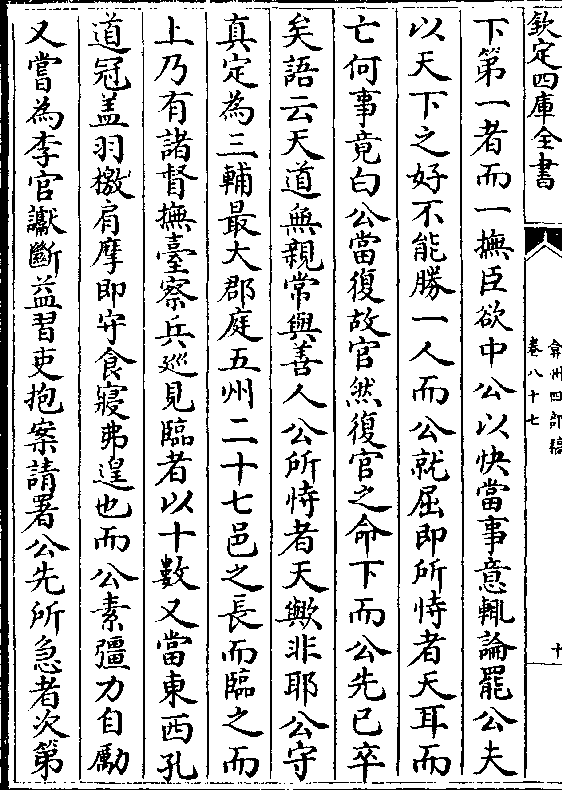 欽定四庫全書
弇州四部稿
卷八十七
十
下第一者而一撫臣欲中公以快當事意輒論罷公夫
以天下之好不能勝一人而公就屈即所恃者天耳而
亡何事竟白公當復故官然復官之命下而公先已卒
矣語云天道無親常與善人公所恃者天歟非耶公守
真定為三輔最大郡庭五州二十七邑之長而臨之而
上乃有諸督撫臺察兵廵見臨者以十數又當東西孔
道冠盖羽檄肩摩即守食寢弗遑也而公素彊力自勵
又嘗為李官讞斷益習吏抱案請署公先所急者次第